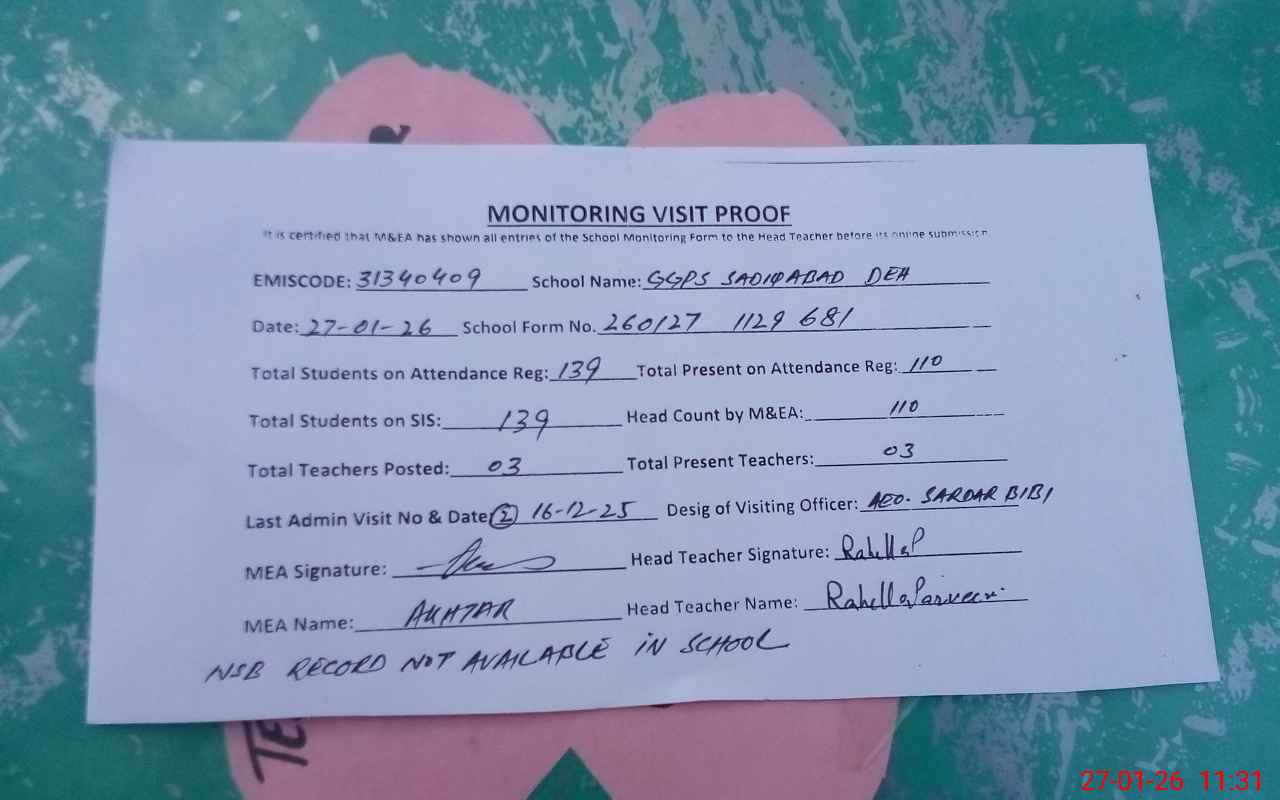 MONITORING VISIT PROOF
It is certified that M&EA has shown all entries of the School Monitoring Form to the Head Teacher before its online submission.
EMISCODE: 31340409 School Name: GGPS SADIQABAD DEH
Date: 27-01-26 School Form No. 260127 1129 681
Total Students on Attendance Reg: 139 Total Present on Attendance Reg: 110
Total Students on SIS: 139 Head Count by M&EA: 110
Total Teachers Posted: 03 Total Present Teachers: 03
Last Admin Visit No & Date 2 16-12-25 Desig of Visiting Officer: AEO. SARDAR BIBI
MEA Signature: Head Teacher Signature: Rahella P
MEA Name: AKHTAR Head Teacher Name: Rahella Parveen.
NSB RECORD NOT AVAILABLE IN SCHOOL
TE
27-01-26 11:31